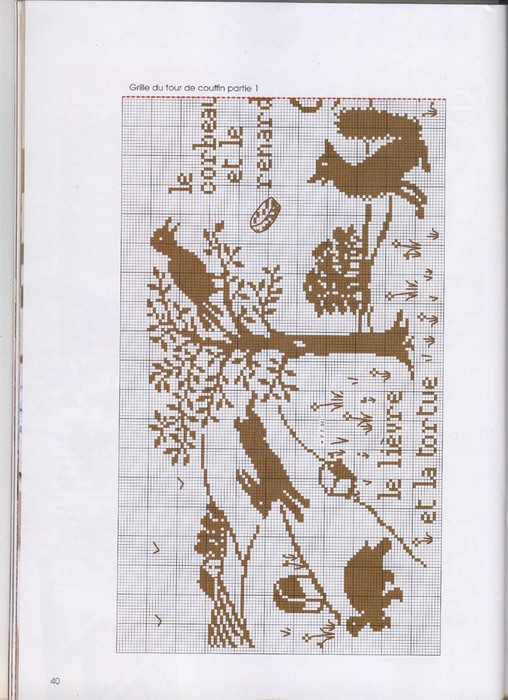 Grille du tour de couffin partie 1
le
corbeau
et le
renard
le lièvre
et la tortue
40